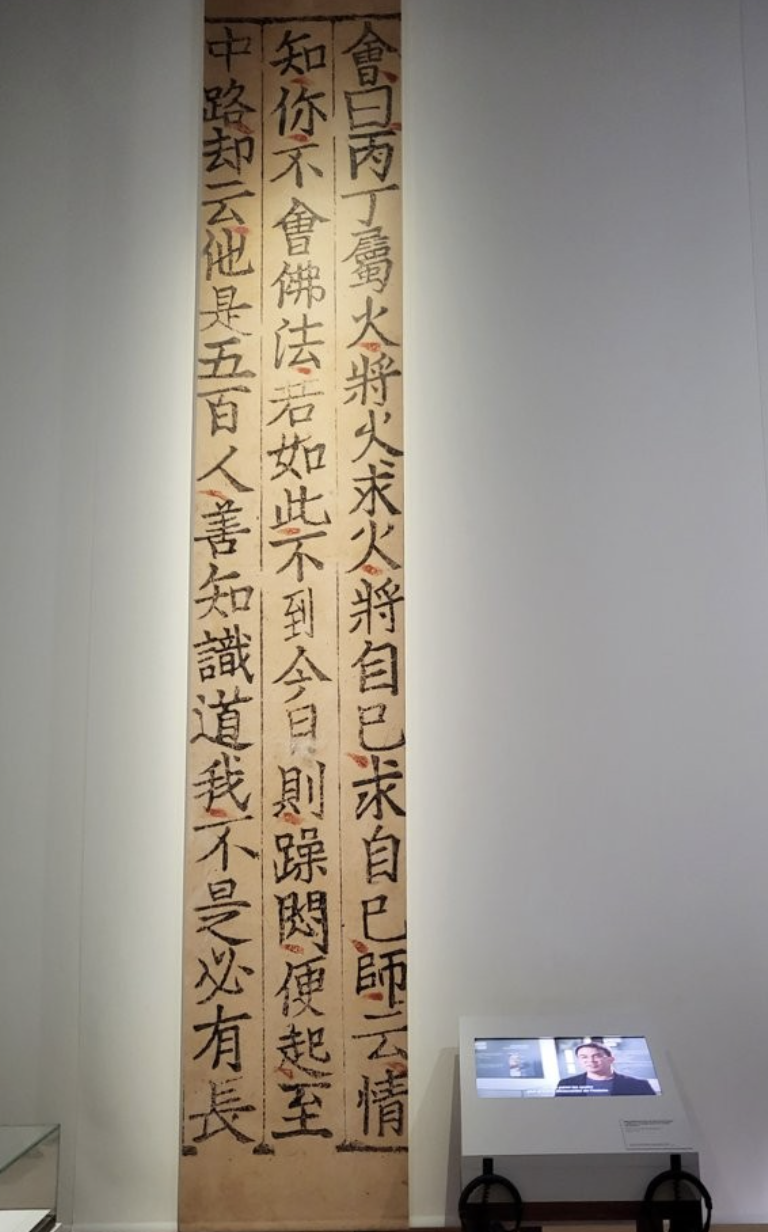 會曰丙丁屬火將火求火將自己求自己師云情
知你不會佛法若如此不到今日則躁悶便起至
中路却云他是五百人善知識道我不是必有長